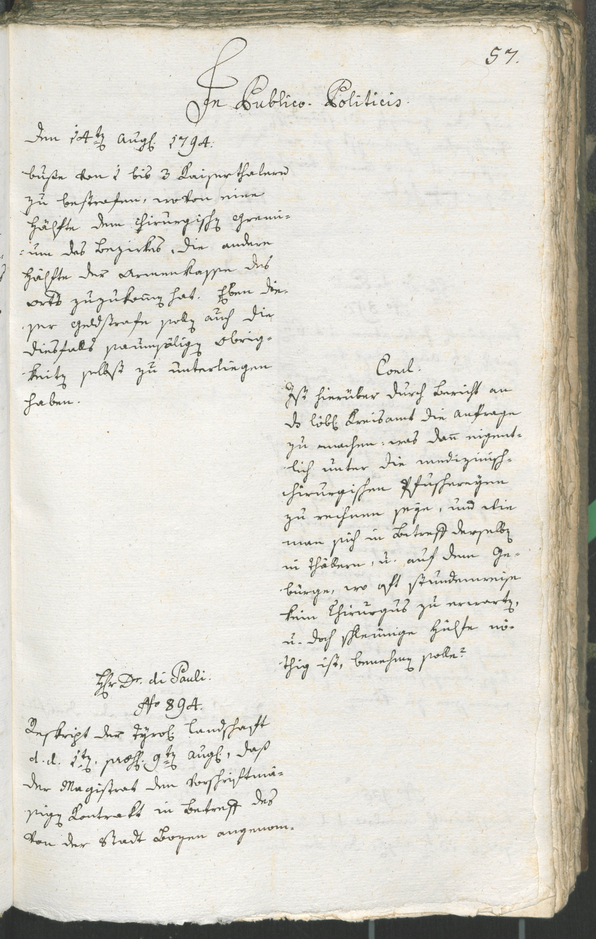 57.
In Publico-Politicis.
Den 14tn Augl. 1794.
buße von 1 bis 3 Kaiserthalern
zu bestrafen, wovon eine
Hälfte dem chirurgischn Gremi-
um des Bezirkes, die andere
Hälfte der Armenkasse des
Orts zuzukomn hat. Eben die-
ser Geldstrafe solln auch die
diesfalls saumsälign Obrig-
keitn selbst zu unterliegen
haben.
Concl.
Ist hierüber durch Bericht an
ds löbl. Kreisamt die Anfrage
zu machen: was dan eigent-
lich unter die medizinisch-
chirurgischen Pfuschereyen
zu rechnen seye, und wie
man sich in Betreff derselbn
in Thälern, u. auf dem Ge-
bürge, wo oft stundenweise
kein Chirurgus zu erwartn,
u. doch schleunige Hülfe nö-
thig ist, benehmn solle?
Hr Dr. di Pauli.
No 894.
Reskript der Tyrol. Landschaft
d. d. 1tn, præs. 9tn Augl., daß
der Magistrat den vorschriftmä-
sign Kontrakt in Betreff des
von der Stadt Bozen angenom-